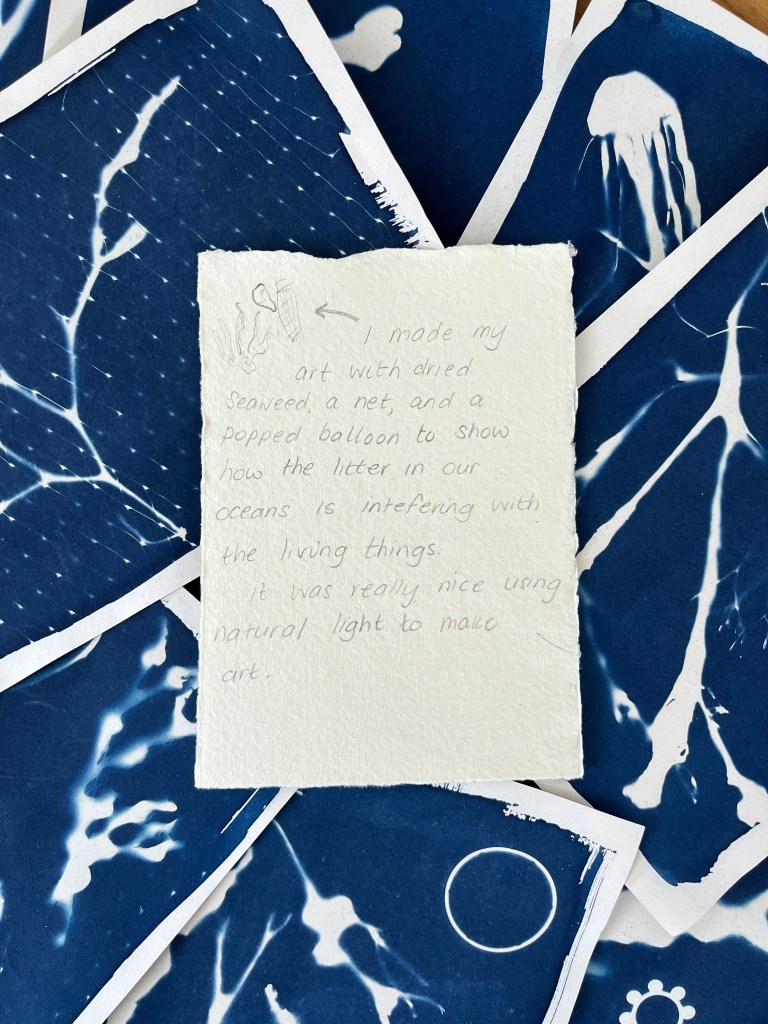 I made my
art with dried
seaweed, a net, and a
popped balloon to show
how the litter in our
oceans is intefering with
the living things.
it was really nice using
natural light to make
art.